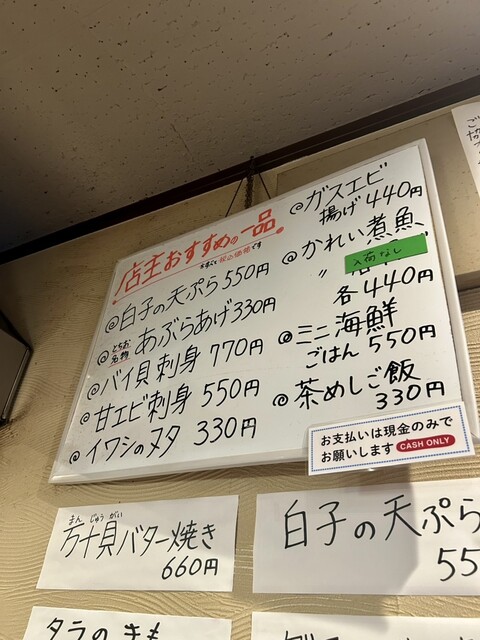 店主おすすめの一品。
※すべて税込価格です
@白子の天ぷら 550円
@とちお名物 あぶらあげ 330円
@バイ貝刺身 770円
@甘エビ刺身 550円
@イワシのヌタ 330円
@ガスエビ
揚げ 440円
@かれい煮魚
〃
入荷なし
各440円
@ミニ海鮮
ごはん 550円
@茶めしご飯
330円
お支払いは現金のみで
お願いします CASH ONLY
まんじゅうがい
万十貝バター焼き
660円
白子の天ぷら
55
タラのきも